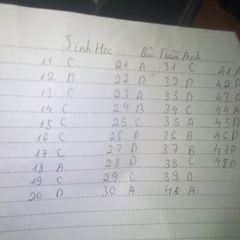 Sinh Học Bùi Xuân Anh
11 C 21 A 31 C 41 A
12 D 22 D 32 D 42 D
13 C 23 A 33 D 43 D
14 C 24 B 34 C 44 A
15 C 25 C 35 A 45 D
16 C 26 D 36 B 46 D
17 C 27 D 37 B 47 D
18 A 28 D 38 C 48 D
19 C 29 C 39 D
20 D 30 A 40 A